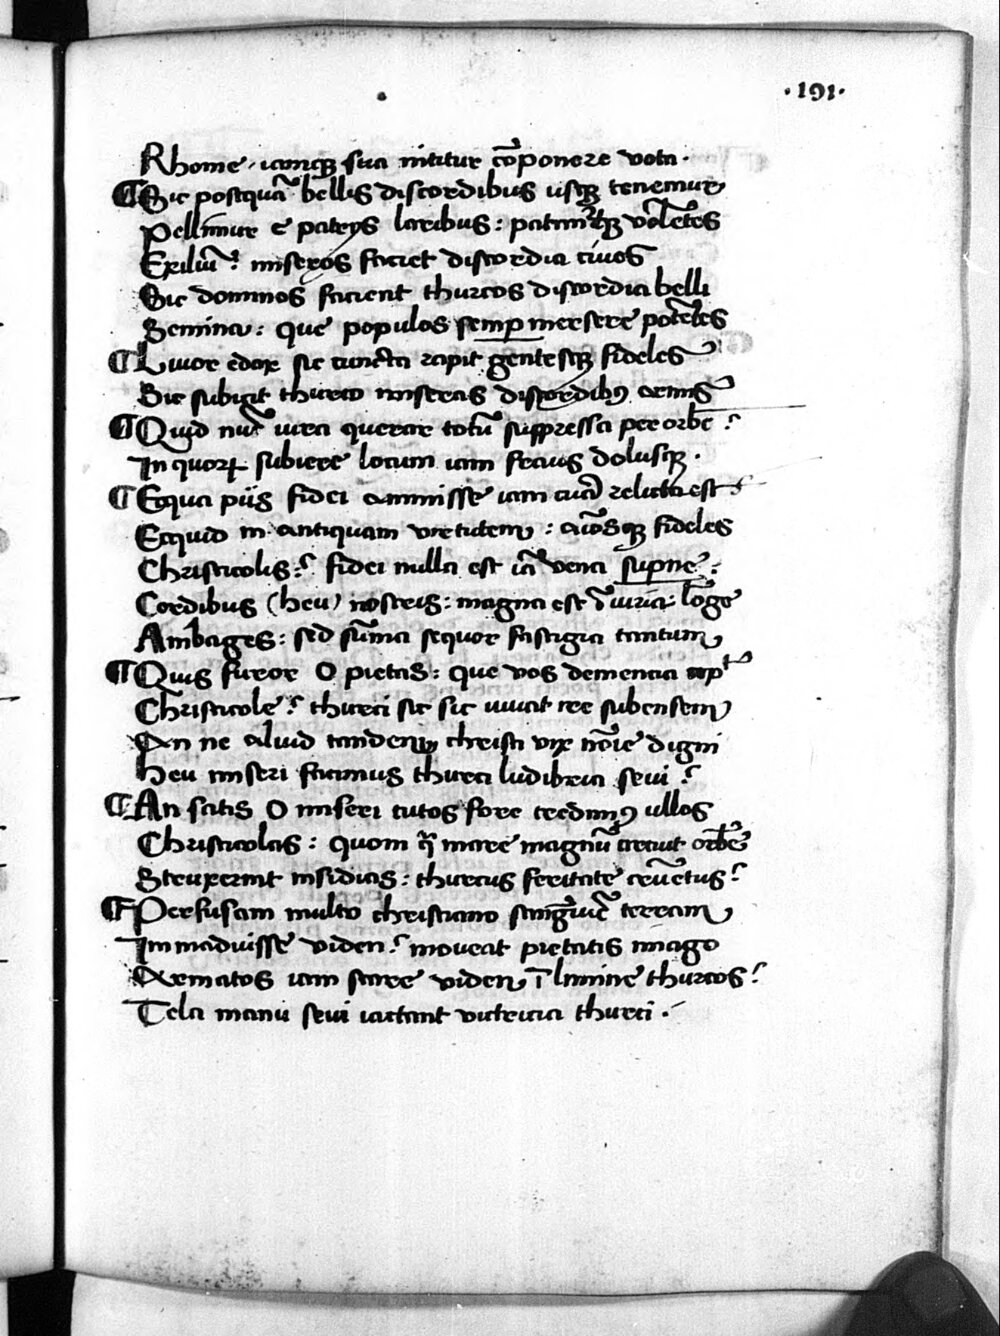 ·191·
Rhome, iamq sua nititur cōponere vota·
¶ Sic postquā bellis discordibus usq tenemur
Pellimur e patrys laribus: patrimūq volētes
Exiliū? miseros faciet discordia cives
Sic dominos facient thurcos discordia belli
Semina: que populos semp mersere potētes
¶ Livor edax sic cuncta rapit gentesq fideles
Sic subigit thurco miseras discordibꝰ armis
¶ Quid nūc iura querar totū suppressa per orbē?
In quorꝝ subiere locum iam fraus dolusq·
¶ Ecqua piis fidei ammisse iam cura relicta est?
Ecquid in antiquam virtutem: aīosq fideles
Christicolis? fidei nulla est iā vena supne?
Cordibus (heu) nostris: magna est īiuria: lōge
Ambages: sed sūma sequor fastigia tantum
¶ Quis furor O pietas: que vos dementia cepit
Christicole? thurci sic sic iuvat ire sub ensem
An ne aliud tandem christi vix noīe digni
Heu miseri facimus thurca ludibria sevi?
¶ An satis O miseri tutos fore credimꝰ ullos
Christicolas: quom p mare magnū creavit orbē
Struxerint insidias: thurcus feritate cruētus?
¶ Perfusam multo christiano sanguīe terram
Immaduisse viden? moveat pietatis imago
Armatos iam stare viden ī limine thurcos?
Tela manu sevi iactant victricia thurci·